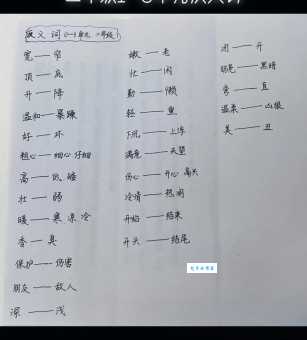 反义词（1-8单元 二年级）
宽——窄
顶——底
升——降
温和——暴躁
好——坏
粗心——细心 仔细
高——低 矮
壮——弱
暖——寒 凉 冷
香——臭
保护——伤害
朋友——敌人
深——浅
嫩——老
忙——闲
勤——懒
轻——重
下沉——上浮
满意——失望
伤心——开心 高兴
冷清——热闹
开始——结束
开头——结尾
闭——开
明亮——黑暗
弯——直
温柔——凶狠
美——丑